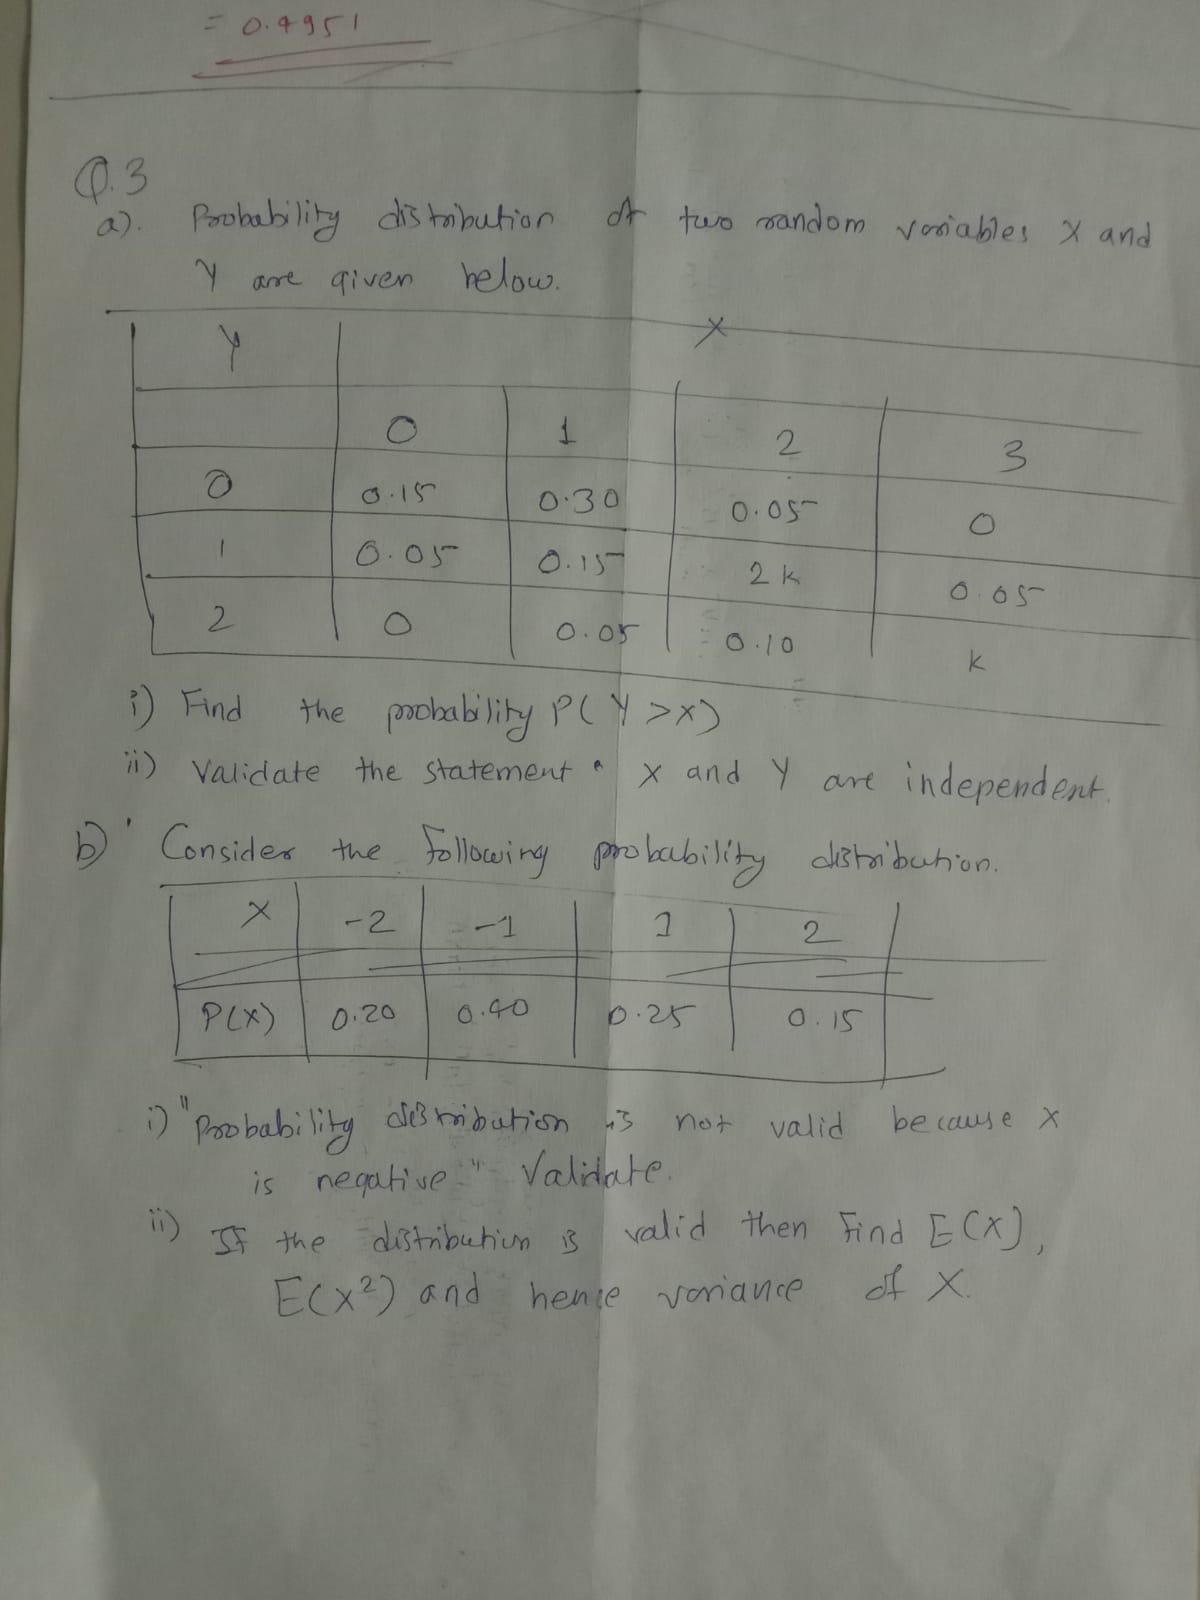 = 0.4951
Q.3
a). Probability distribution of two random variables X and
Y are given below.
Y X
0 1 2 3
0 0.15 0.30 0.05 0
1 0.05 0.15 2k 0.05
2 0 0.05 0.10 k
i) Find the probability P(Y>X)
ii) Validate the statement " X and Y are independent.
b) Consider the following probability distribution.
X -2 -1 1 2
P(X) 0.20 0.40 0.25 0.15
i) "Probability distribution is not valid because X
is negative." Validate.
ii) If the distribution is valid then Find E(X),
E(X²) and hence variance of X.